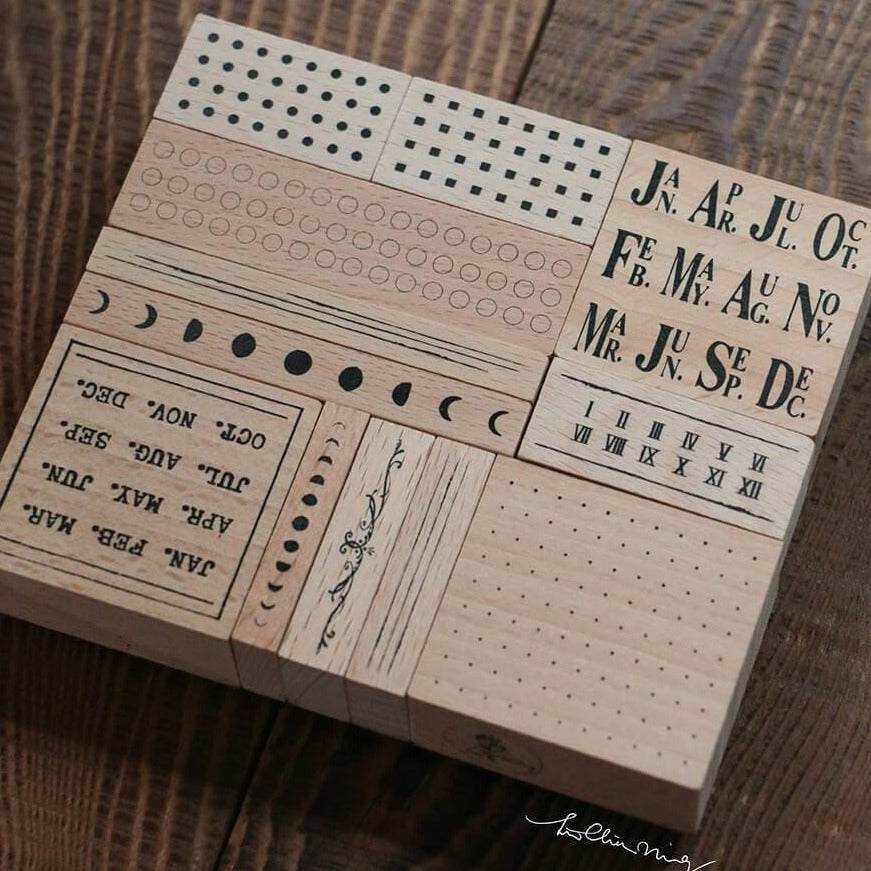 JAN. APR. JUL. OCT.
FEB. MAY. AUG. NOV.
MAR. JUN. SEP. DEC.
I II III IV V VI
VII VIII IX X XI XII
JAN. FEB. MAR.
APR. MAY. JUN.
JUL. AUG. SEP.
OCT. NOV. DEC.